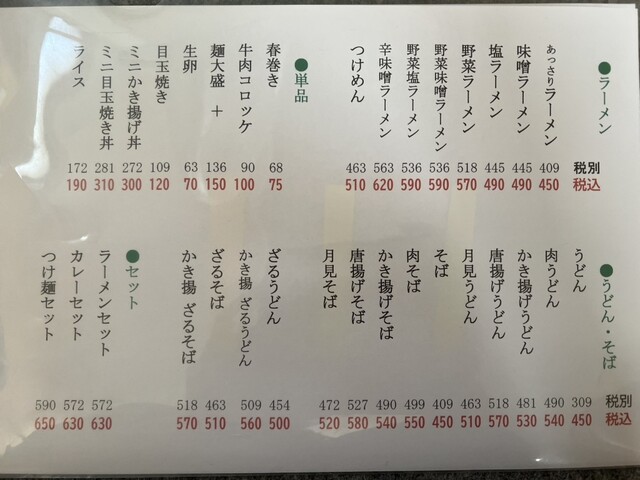 ●ラーメン 税別 税込
あっさりラーメン 409 450
味噌ラーメン 445 490
塩ラーメン 445 490
野菜ラーメン 518 570
野菜味噌ラーメン 536 590
野菜塩ラーメン 536 590
辛味噌ラーメン 563 620
つけめん 463 510
●単品
春巻き 68 75
牛肉コロッケ 90 100
麺大盛 + 136 150
生卵 63 70
目玉焼き 109 120
ミニかき揚げ丼 272 300
ミニ目玉焼き丼 281 310
ライス 172 190
●うどん・そば 税別 税込
うどん 309 450
肉うどん 490 540
かき揚げうどん 481 530
唐揚げうどん 518 570
月見うどん 463 510
そば 409 450
肉そば 499 550
かき揚げそば 490 540
唐揚げそば 527 580
月見そば 472 520
ざるうどん 454 500
かき揚 ざるうどん 509 560
ざるそば 463 510
かき揚 ざるそば 518 570
●セット
ラーメンセット 572 630
カレーセット 572 630
つけ麺セット 590 650